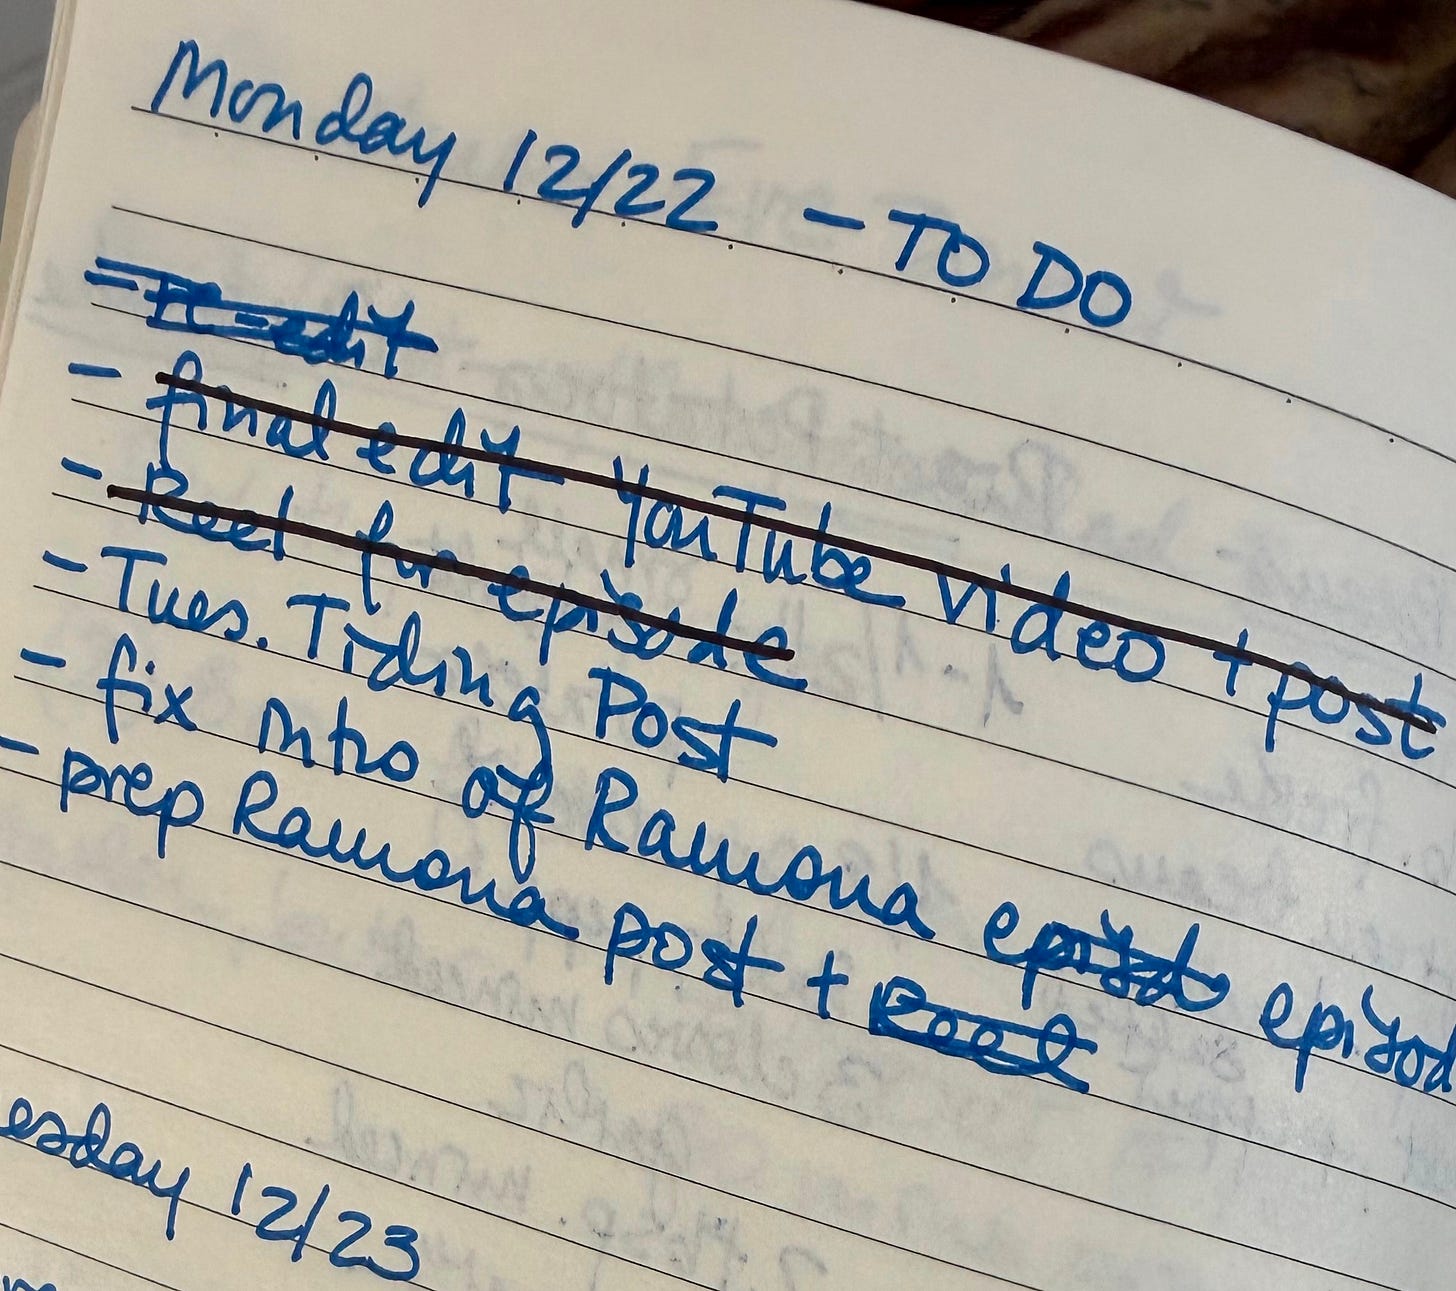 Monday 12/22 - TO DO
- re-edit
- final edit YouTube video + post
- Reel for episode
- Tues. Tiding Post
- fix intro of Ramona episod episod
- prep Ramona post + Reel
esday 12/23